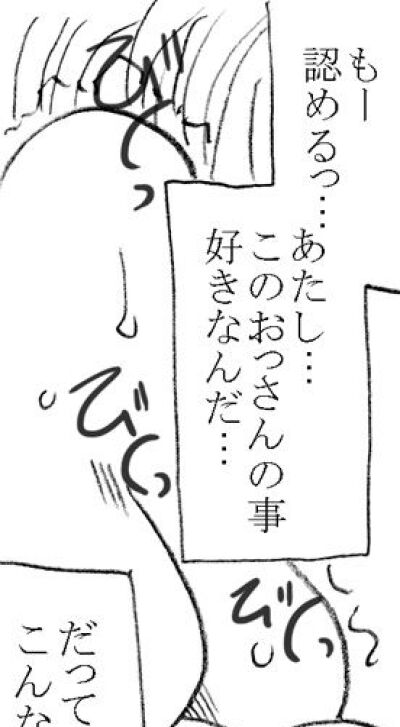 もー
認めるっ…
あたし…
このおっさんの事
好きなんだ…
びくっ
びくっ
びくっ
だって
こんな